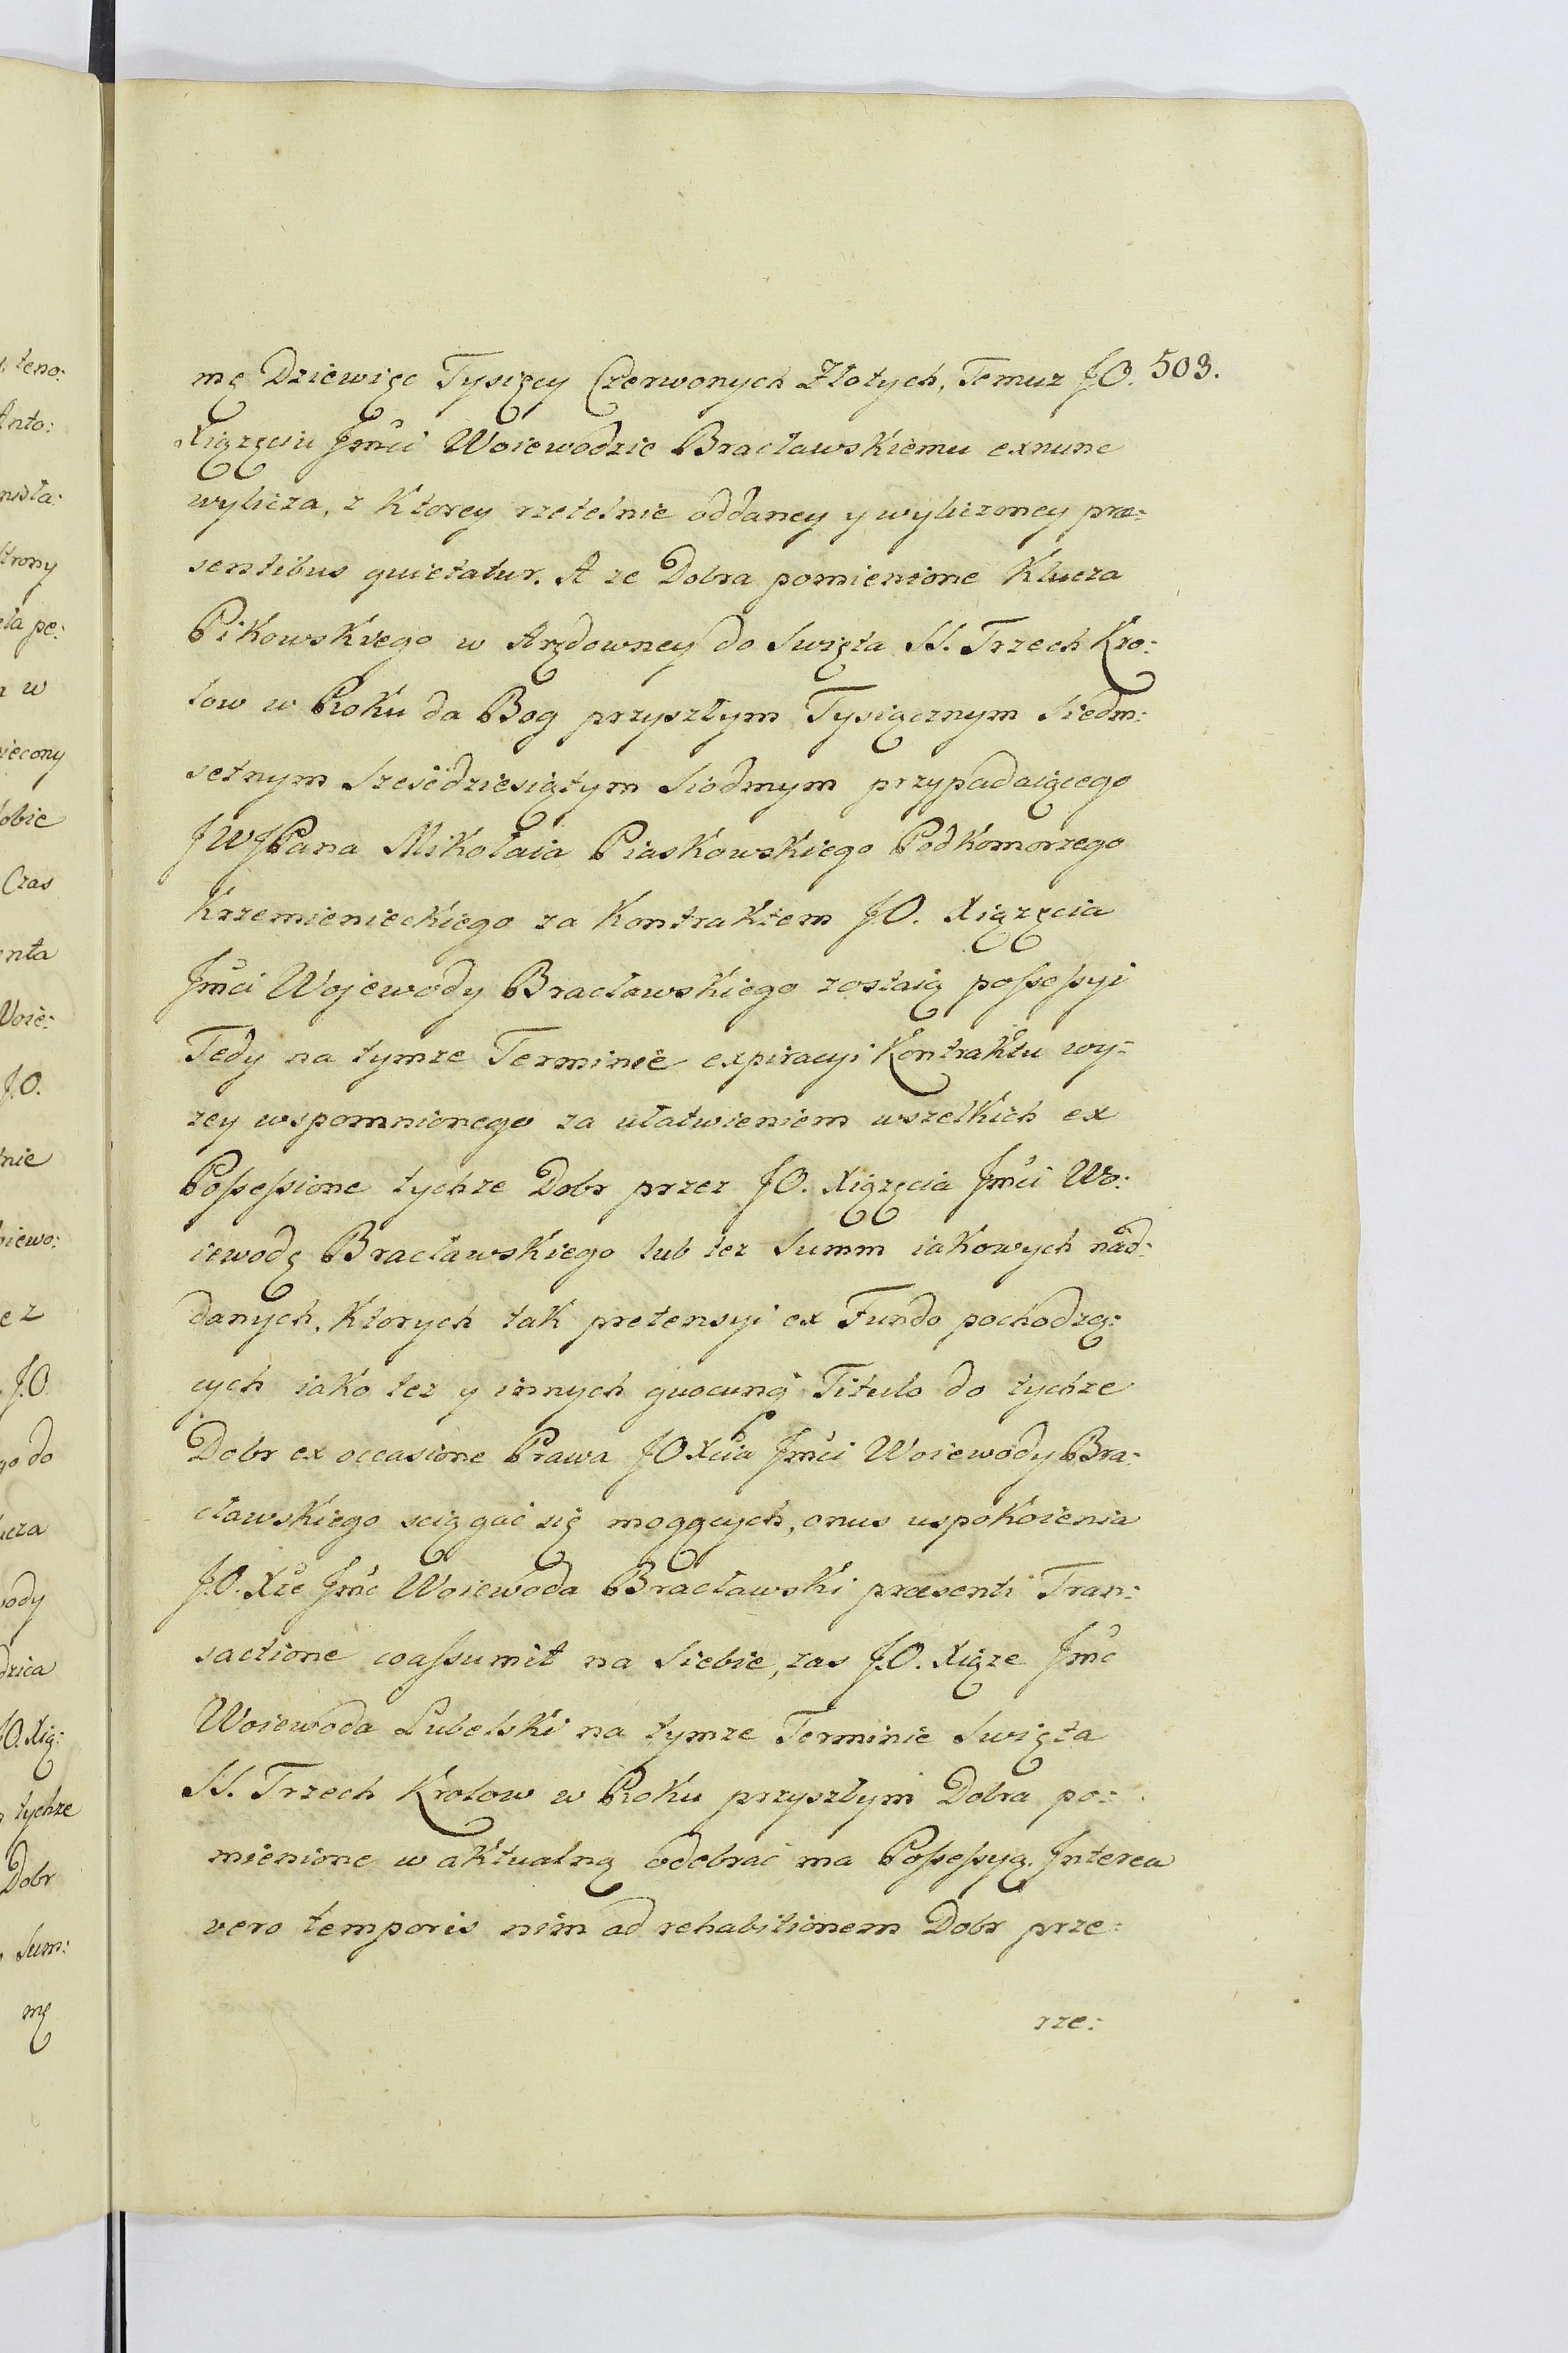 503.
mę Dziewięc Tysięcy Czerwonych Złotych, Temuz JO.
Xiązęciu Jmći Woiewodzie Bracławskiemu exnunc
wylicza, z Ktorey rzetelnie oddaney y wyliczoney præ:
sentibus quietatur. A ze Dobra pomienione Klucza
Pikowskiego w Arędowney do Swięta SS. Trzech Kro:
low w Roku da Bog przyszłym Tysiącznym Siedm:
setnym Szescdziesiątym Siodmym przypadaiącego
JWJPana Mikołaia Piaskowskiego Podkomorzego
Krzemienieckiego za Kontraktem J.O. Xiązęcia
Jmći Wojewody Bracławskiego zostaią possessyi
Tedy na tymze Terminie expiracyi Kontraktu wy:
zey wspomnionego za ułatwieniem wszelkich ex
Possessione tychze Dobr przez JO. Xiązęcia Jmći Wo:
iewodę Bracławskiego lub tez Summ iakowych nad:
danych, Ktorych tak pretensyi ex Fundo pochodzą:
cych iako tez y innych quocunq Titulo do tychze
Dobr ex occasione Prawa JO Xcia Jmći Woiewody Bra:
cławskiego sciągać się mogących, onus uspokoienia
J.O. Xże Jmć Woiewoda Bracławski præsenti Tran:
sactione coassumit na Siebie, zas J.O. Xiąze Jmć
Woiewoda Lubelski na tymze Terminie Swięta
SS. Trzech Krolow w Roku przyszłym Dobra po:
mienione w aktualną odebrać ma Possessyą. Interea
vero temporis nim ad rehabitionem Dobr prze:
rze:
teno:
Anto:
trony
ła pe:
w
iecony
obie
Czas
nta
Woie:
J.O.
nie
iewo:
e z
J.O.
go do
ucza
ody
dzica
JO. Xią:
tychze
Dobr
Sum:
mę